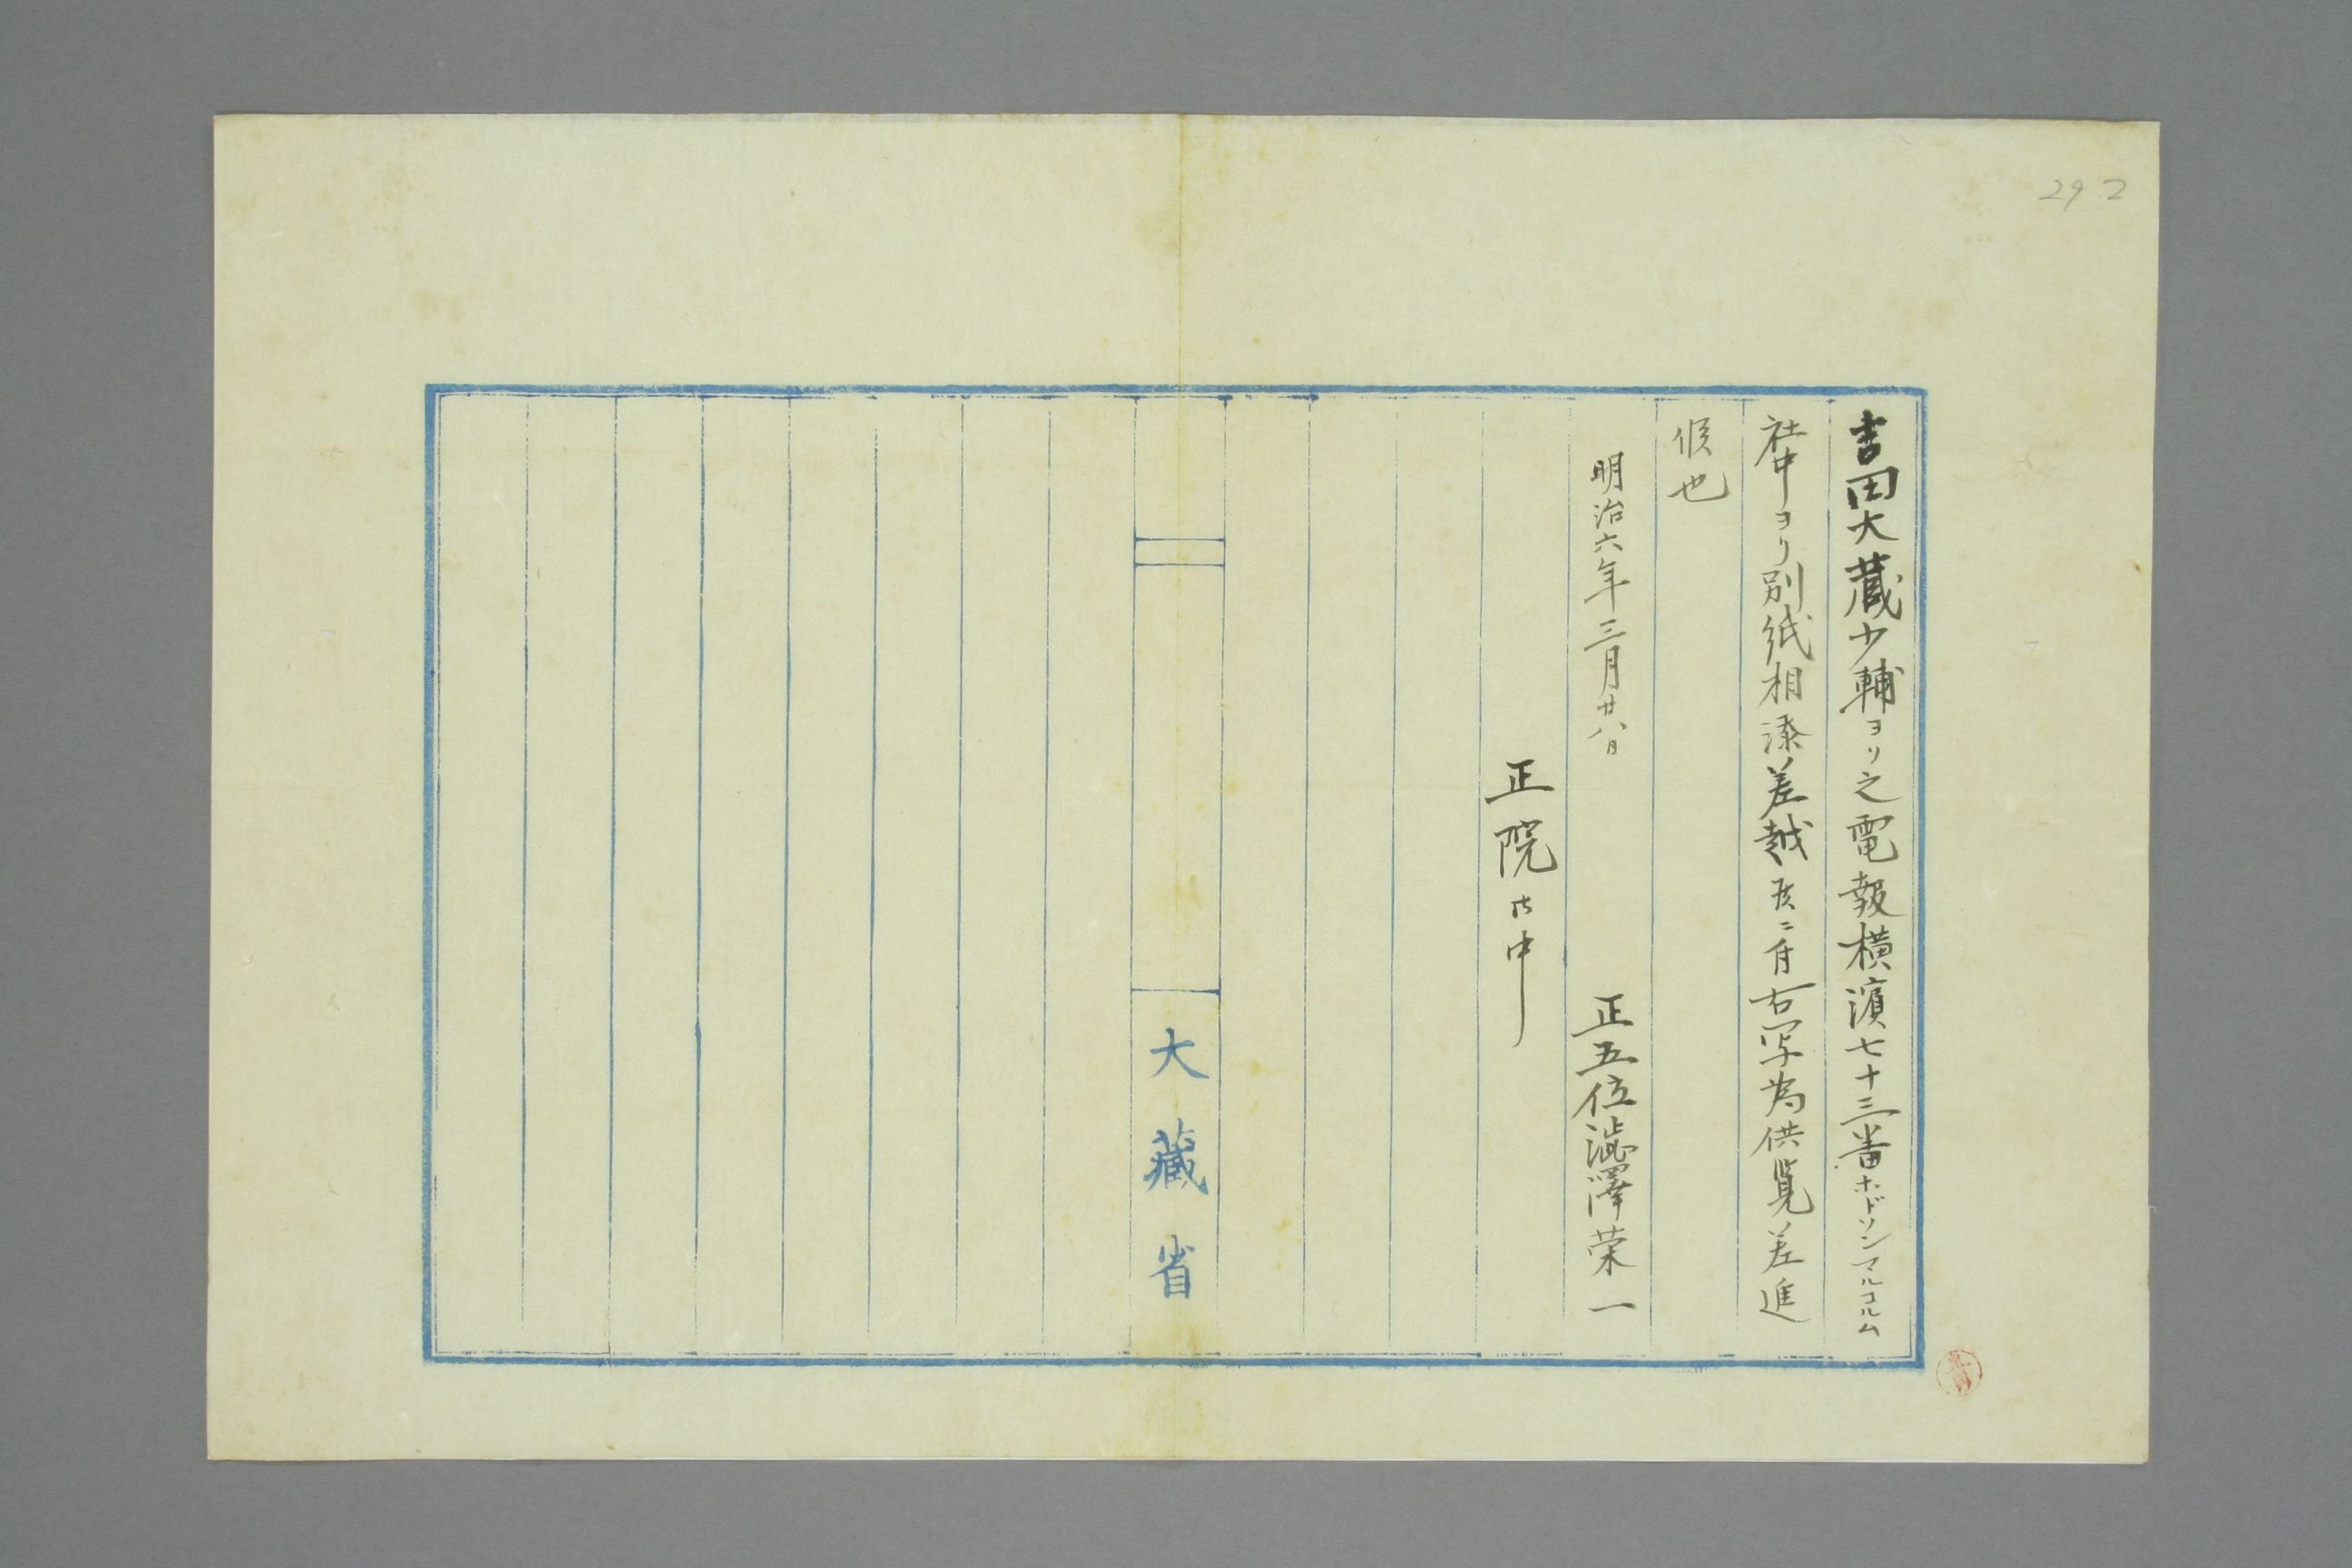 吉田大蔵少輔ヨリ之電報横濱七十三番ホドソンマルコルム
社中ヨリ別紙相添差越候ニ付右写為供覧差進
候也
明治六年三月廿八日
正五位澁澤栄一
正院御中
大藏省
292